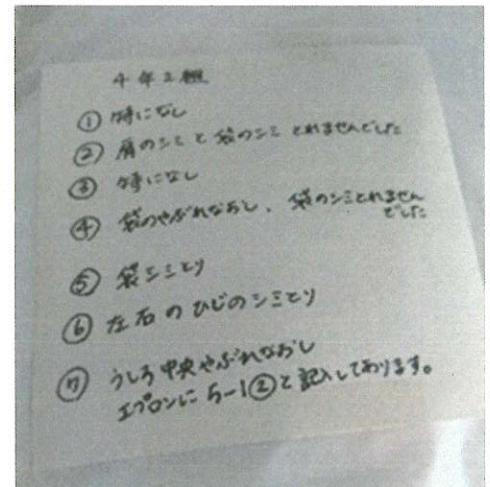 4年2組
① 特になし
② 肩のシミと袋のシミ とれませんでした
③ 特になし
④ 袋のやぶれなおし、袋のシミとれません
でした
⑤ 袋シミとり
⑥ 左右のひじのシミとり
⑦ うしろ中央やぶれなおし
エプロンに 5-1②と記入してあります。